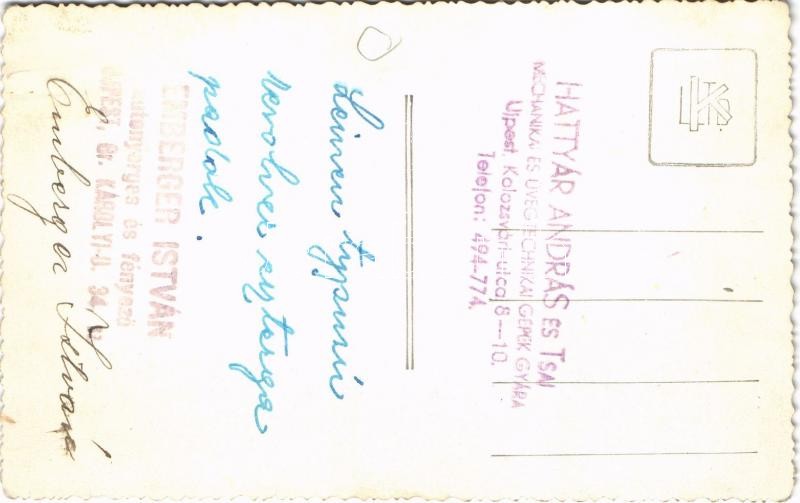 HATTYÁR ANDRÁS ÉS TSAI
MECHANIKAI ÉS ÜVEGTECHNIKAI GÉPEK GYÁRA
Ujpest, Kolozsvári-utca 8—10.
Telefon: 494-774.
typusú
revolver eszterga
padok.
EMBERGER ISTVÁN
autónyerges és fényező
ÚJPEST, Gr. KÁROLYI-U. 34.
Emberger István